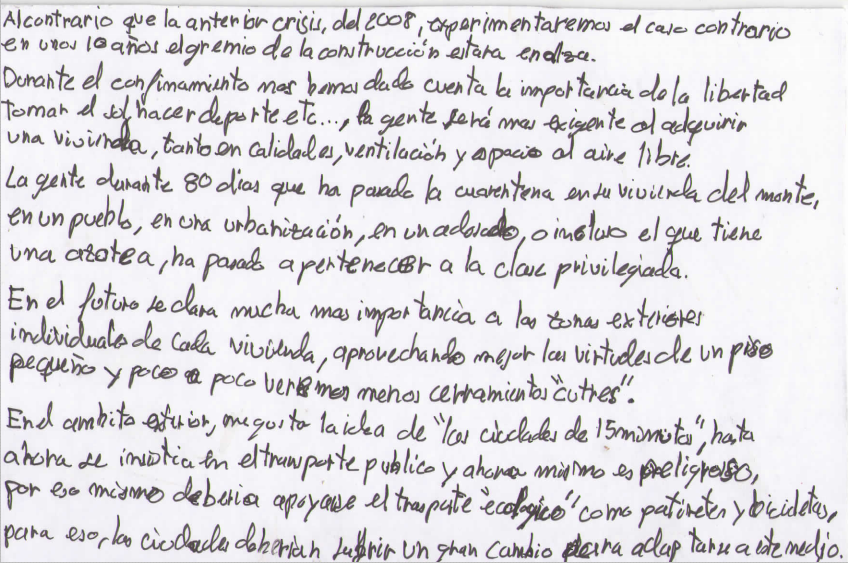 Al contrario que la anterior crisis, del 2008, experimentaremos el caso contrario
en unos 10 años el gremio de la construcción estara en alza.
Durante el confinamiento nos hemos dado cuenta la importancia de la libertad
tomar el sol, hacer deporte etc..., la gente será mas exigente al adquirir
una vivienda, tanto en calidades, ventilación y espacio al aire libre.
La gente durante 80 dias que ha pasado la cuarentena en su vivienda del monte,
en un pueblo, en una urbanización, en un adosado, o incluso el que tiene
una azotea, ha pasado a pertenecer a la clase privilegiada.
En el futuro se dara mucha mas importancia a las zonas exteriores
individuales de cada vivienda, aprovechando mejor las virtudes de un piso
pequeño y poco a poco veremos menos cerramientos "cutres".
En el ambito exterior, me gusta la idea de "las ciudades de 15 minutos", hasta
ahora se insistia en el transporte publico y ahora mismo es peligroso,
por eso mismo deberia apoyarse el trasporte "ecologico" como patinetes y bicicletas,
para eso, las ciudades deberian sufrir un gran cambio para adaptarse a este medio.